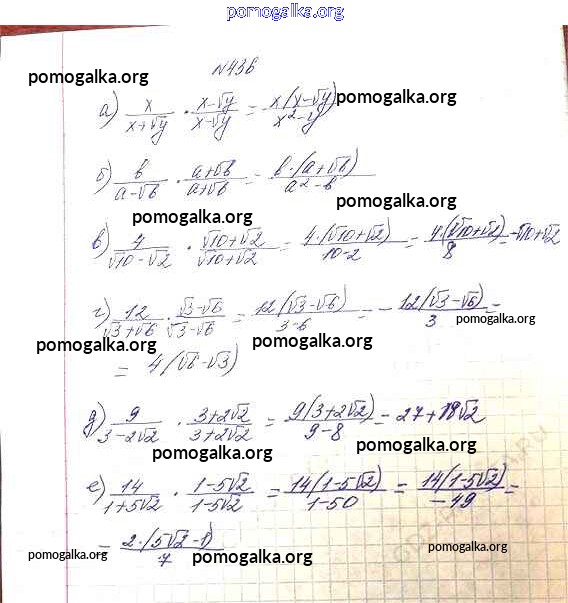 pomogalka.org
№436
pomogalka.org
а) x/(x+√y) · (x-√y)/(x-√y) = x(x-√y)/(x²-y)
pomogalka.org
б) b/(a-√b) · (a+√b)/(a+√b) = b·(a+√b)/(a²-b)
pomogalka.org
pomogalka.org
в) 4/(√10-√2) · (√10+√2)/(√10+√2) = 4·(√10+√2)/(10-2) = 4·(√10+√2)/8 =
pomogalka.org
г) 12/(√3+√6) · (√3-√6)/(√3-√6) = 12(√3-√6)/(3-6) = - 12(√3-√6)/3 =
pomogalka.org
pomogalka.org
pomogalka.org
= 4(√6-√3)
д) 9/(3-2√2) · (3+2√2)/(3+2√2) = 9(3+2√2)/(9-8) = 27+18√2
pomogalka.org
pomogalka.org
е) 14/(1+5√2) · (1-5√2)/(1-5√2) = 14(1-5√2)/(1-50) = 14(1-5√2)/(-49) =
= 2·(5√2-1)/7
pomogalka.org
pomogalka.org
pomogalka.org